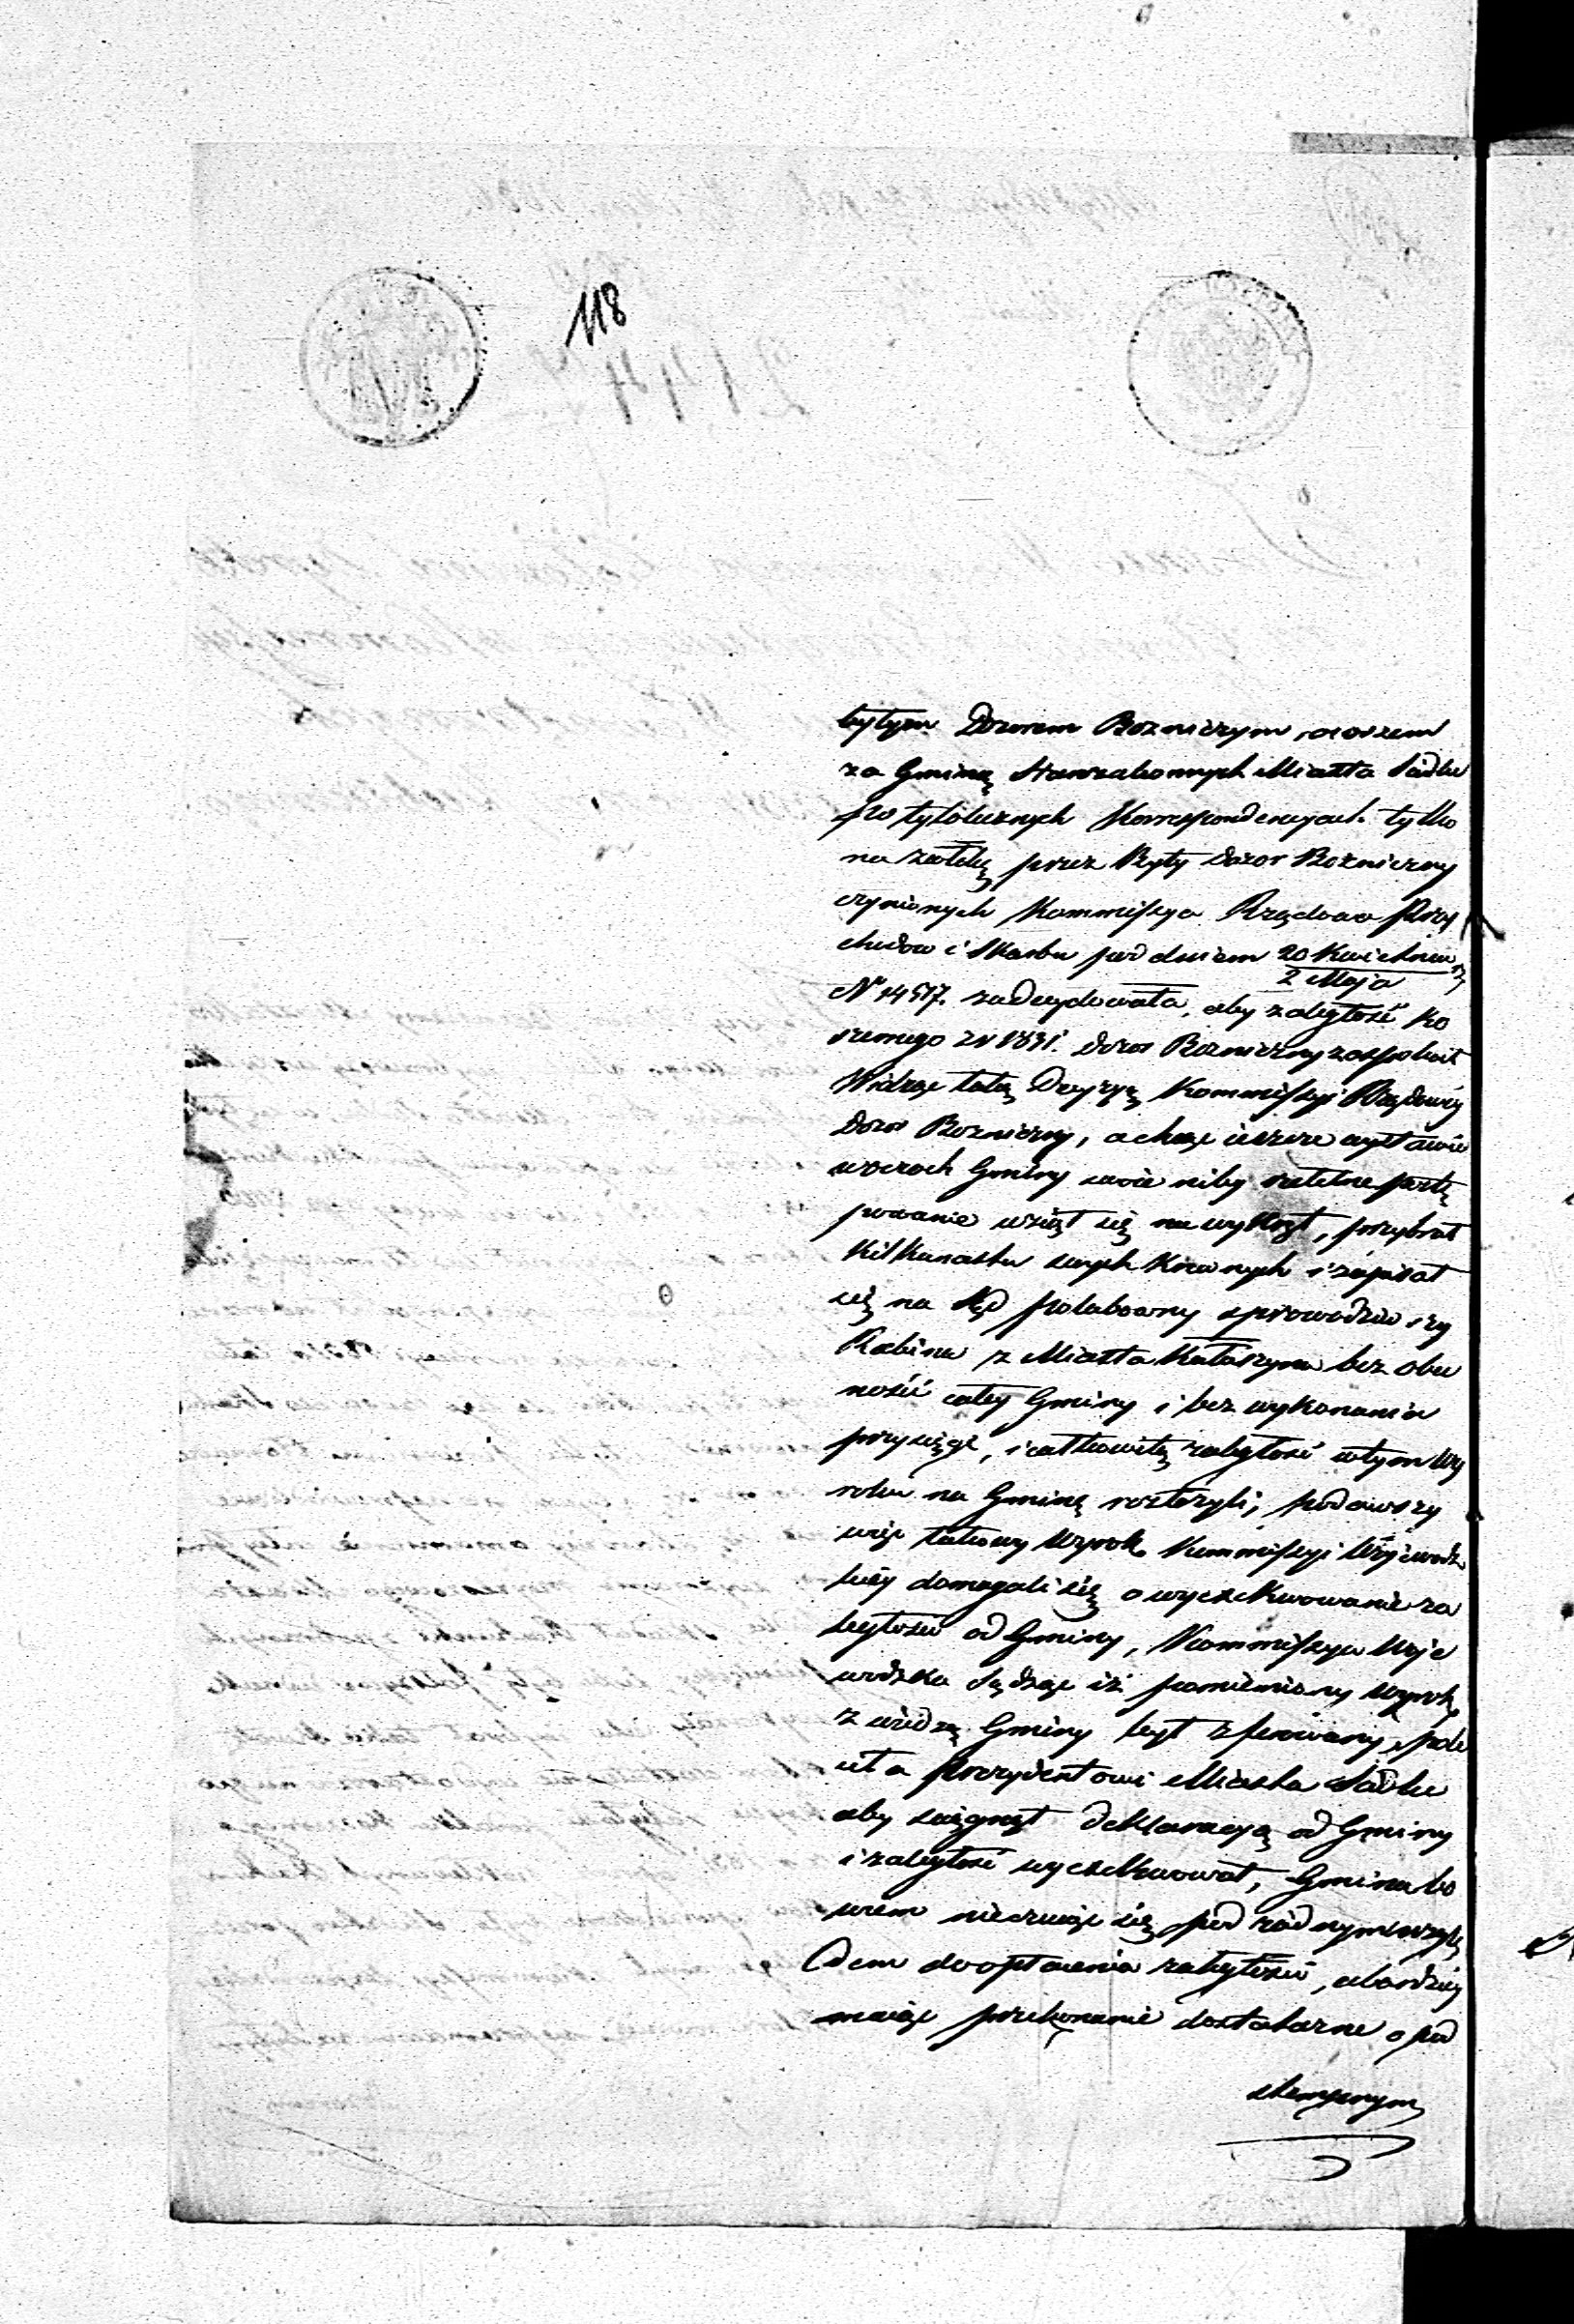 118
bytym Dozorem Bozniczym, a razem
za Gminą Starozakonnych Miasta
po tylolicznych Korrespondencyach tylko
na zwłokę przez Byty Dozor Bozniczny
czynionych Kommissya Rządowa Przy
chodow i Skarbu pod dniem 20 Kwietnia
2 Maja
N 14517. zadecydowała, aby zaległość ko
szernego z r 1831. Dozor Bozniczny zaspokoił
Widząc taką Decyzyą Kommissyi Rządowéy
Dozor Bozniczny, a chcąc ieszcze wystawić
w oczach Gminy swoie niby rzetelne postę
powanie wziął się na wykręt, przybrał
Kilkunastu swych Krewnych i zapisał
się na Sąd polubowny sprowadziwszy
Rabina z Miasta Kałuszyna bez obec
ności całey Gminy i bez wykonania
przysięgi, i całkowitą zaległość w tym Wy
roku na Gminę rozłożyli, podawszy
więc takowy Wyrok Kommissyi Woiewodz
kiéy domagali się o wyexekwowanie za
ległości od Gminy, Kommissya Woje
wodzka Sądząc iż pomieniony Wyrok
z wiedzą Gminy był, pole
ciła Prezydentowi Miasta
aby ściągnął deklaracyą od Gminy
i zaległość wyexekwował, Gmina bo
wiem nieczując się pod żadnym wzglę
dem do opłacenia zaległości, a bardziéy
maiąc przekonanie dostateczne o pod
stempnym